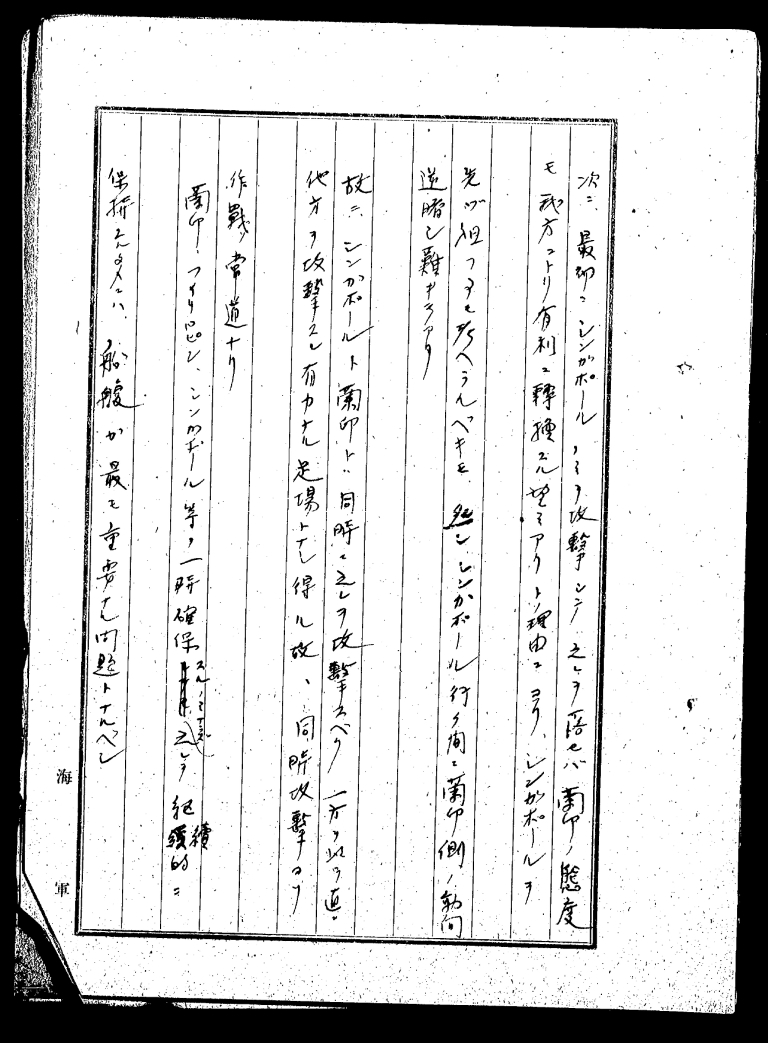 次ニ、最初ニシンガポールノミヲ攻撃シテ之レヲ陥セバ蘭印ノ態度
モ我方ニトリ有利ニ轉換スル望ミアリトノ理由ニヨリ、シンガポールヲ
先ヅ狙フコトモ考ヘラルベキモ シンガポールヲ行フ間ニ蘭印側ノ動向
逆睹シ難キモアリ
故ニ、シンガポールト蘭印トハ同時ニ之レヲ攻撃スベク 一方ヲ以テ直ニ
他方ヲ攻撃スル有力ナル足場トナシ得ル故、同時攻撃コソ
作戰ノ常道ナリ
蘭印、フイリピン、シンガポール等ノ一時確保スルノミナラズ之レヲ継續的ニ
保持スルタメニハ、船艙ガ最モ重要ナル問題トナルベシ
海軍